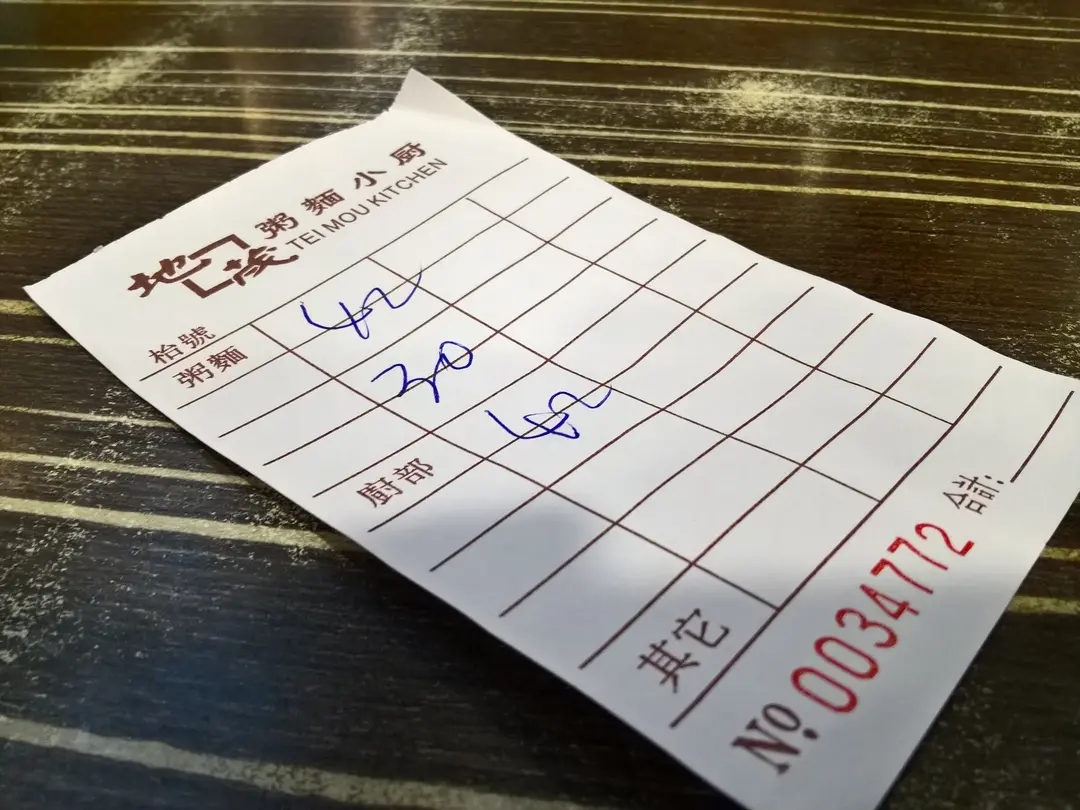 地茂 粥麵小厨
TEI MOU KITCHEN
枱號
粥麵
42
30
42
廚部
其它
合計:
No. 0034772